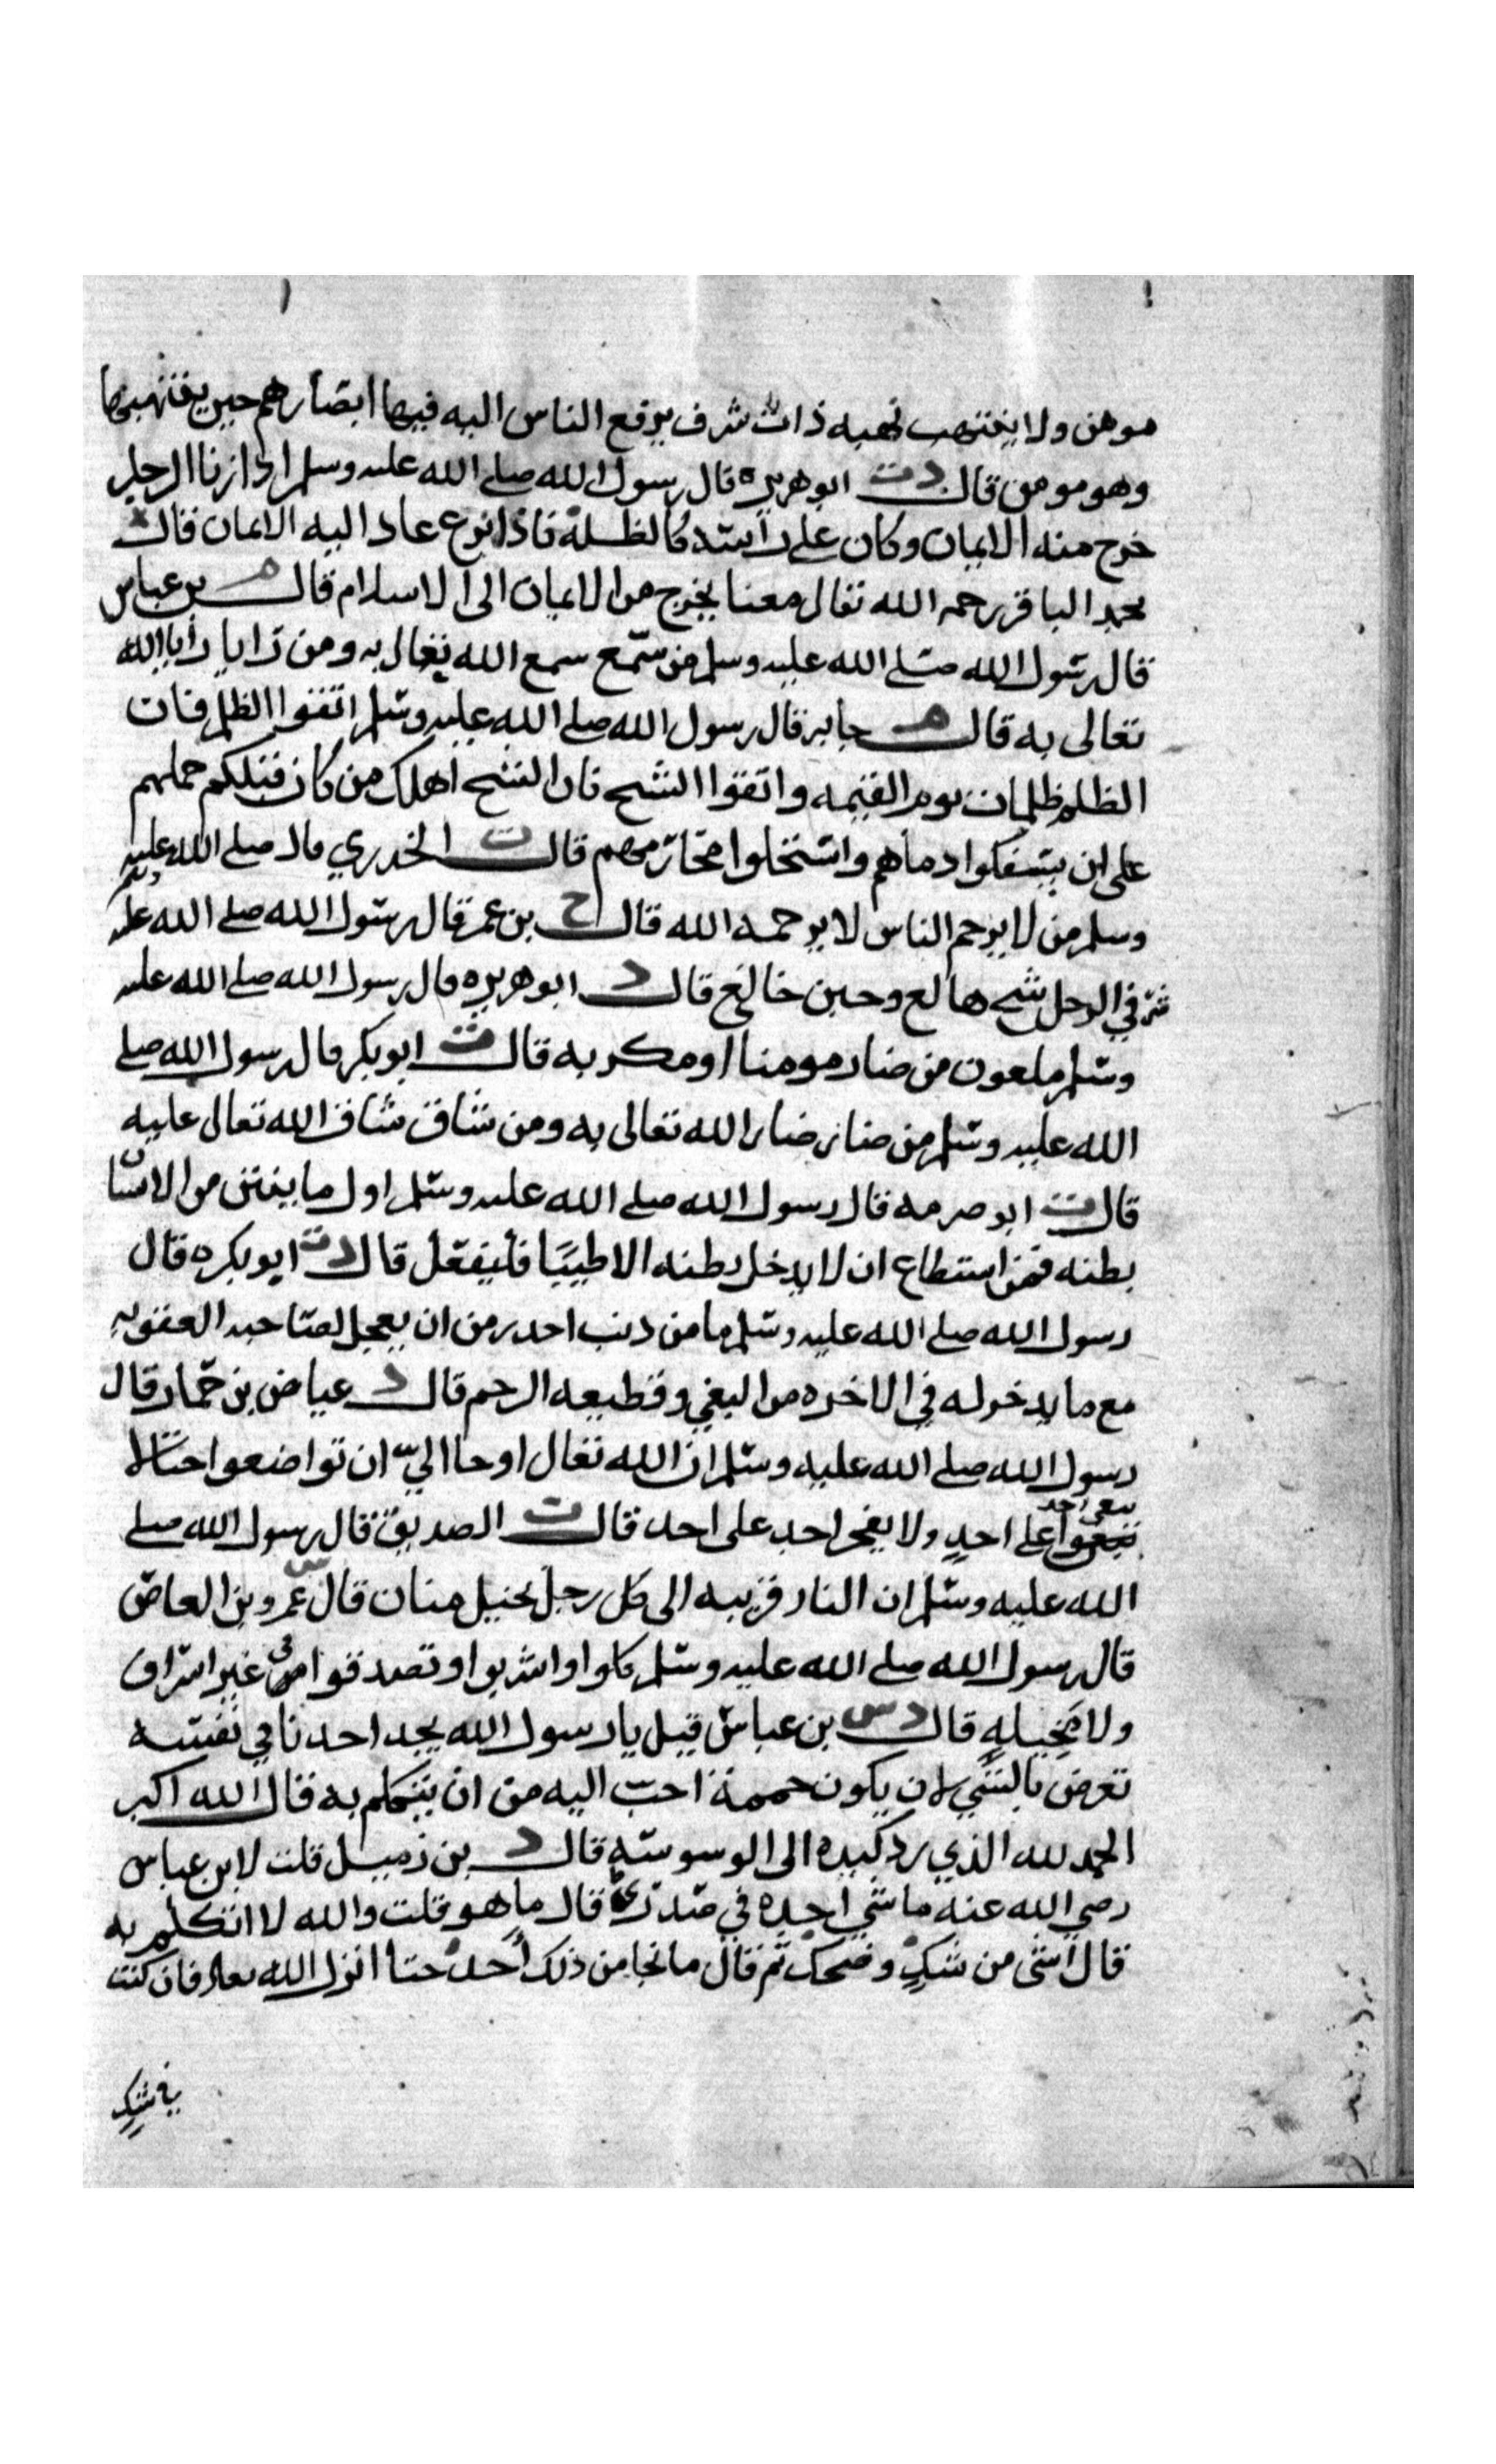 مومن ولا ينتهب نهبه ذات شرف يرفع الناس اليه فيها ابصارهم حين ينتهبها
وهو مومن قال دت ابو هريرة قال رسول الله صلى الله عليه وسلم اذا زنا الرجل
خرج منه الايمان وكان على راسه كالظلة فاذا نزع عاد اليه الايمان قال
محمد الباقر رحمه الله تعالى معنا يخرج من الايمان الى الاسلام قال م بن عباس
قال رسول الله صلى الله عليه وسلم من سمع سمع الله تعالى به ومن رايا رايا الله
تعالى به قال م جابر قال رسول الله صلى الله عليه وسلم اتقوا الظلم فان
الظلم ظلمات يوم القيمه واتقوا الشح فان الشح اهلك من كان قبلكم حملهم
على ان يسفكوا دماهم واستحلوا محارمهم قال ت الخدري قال صلى الله عليه
وسلم من لا يرحم الناس لا يرحمه الله قال ح بن عمر قال رسول الله صلى الله عليه وسلم
شر في الرجل شح هالع وجبن خالع قال د ابو هريره قال رسول الله صلى الله عليه
وسلم ملعون من ضار مومنا او مكر به قال ت ابو بكر قال رسول الله صلى
الله عليه وسلم من ضار ضار الله تعالى به ومن شاق شاق الله تعالى عليه
قال ت ابو صرمه قال رسول الله صلى الله عليه وسلم اول ما ينتن من الانسان
بطنه فمن استطاع ان لا يدخل بطنه الا طيبا فليفعل قال دت ابو بكره قال
رسول الله صلى الله عليه وسلم ما من ذنب احدر من ان يعجل لصاحبه العقوبه
مع ما يدخر له في الاخره من البغي وقطيعه الرحم قال د عياض بن حمار قال
رسول الله صلى الله عليه وسلم ان الله تعالى اوحا الي ان تواضعوا حتا لا
يبغي احد على احد ولا يفخر احد على احد قال ت الصديق قال رسول الله صلى
الله عليه وسلم ان النار قريبه الى كل رجل بخيل منان قال س عمرو بن العاص
قال رسول الله صلى الله عليه وسلم كلوا واشربوا وتصدقوا في غير اسراف
ولا مخيله قال دس بن عباس قيل يا رسول الله يجد احدنا في نفسه
تعرض بالشي لان يكون حممة احب اليه من ان يتكلم به فقال الله اكبر
الحمد لله الذي رد كيده الى الوسوسة قال د بن زميل قلت لابن عباس
رضي الله عنه ما شي اجده في صدري قال ما هو قلت والله لا اتكلم به
قال اشى من شك وضحك ثم قال ما نجا من ذلك احد حتا انزل الله تعالى فان كنت
في شك